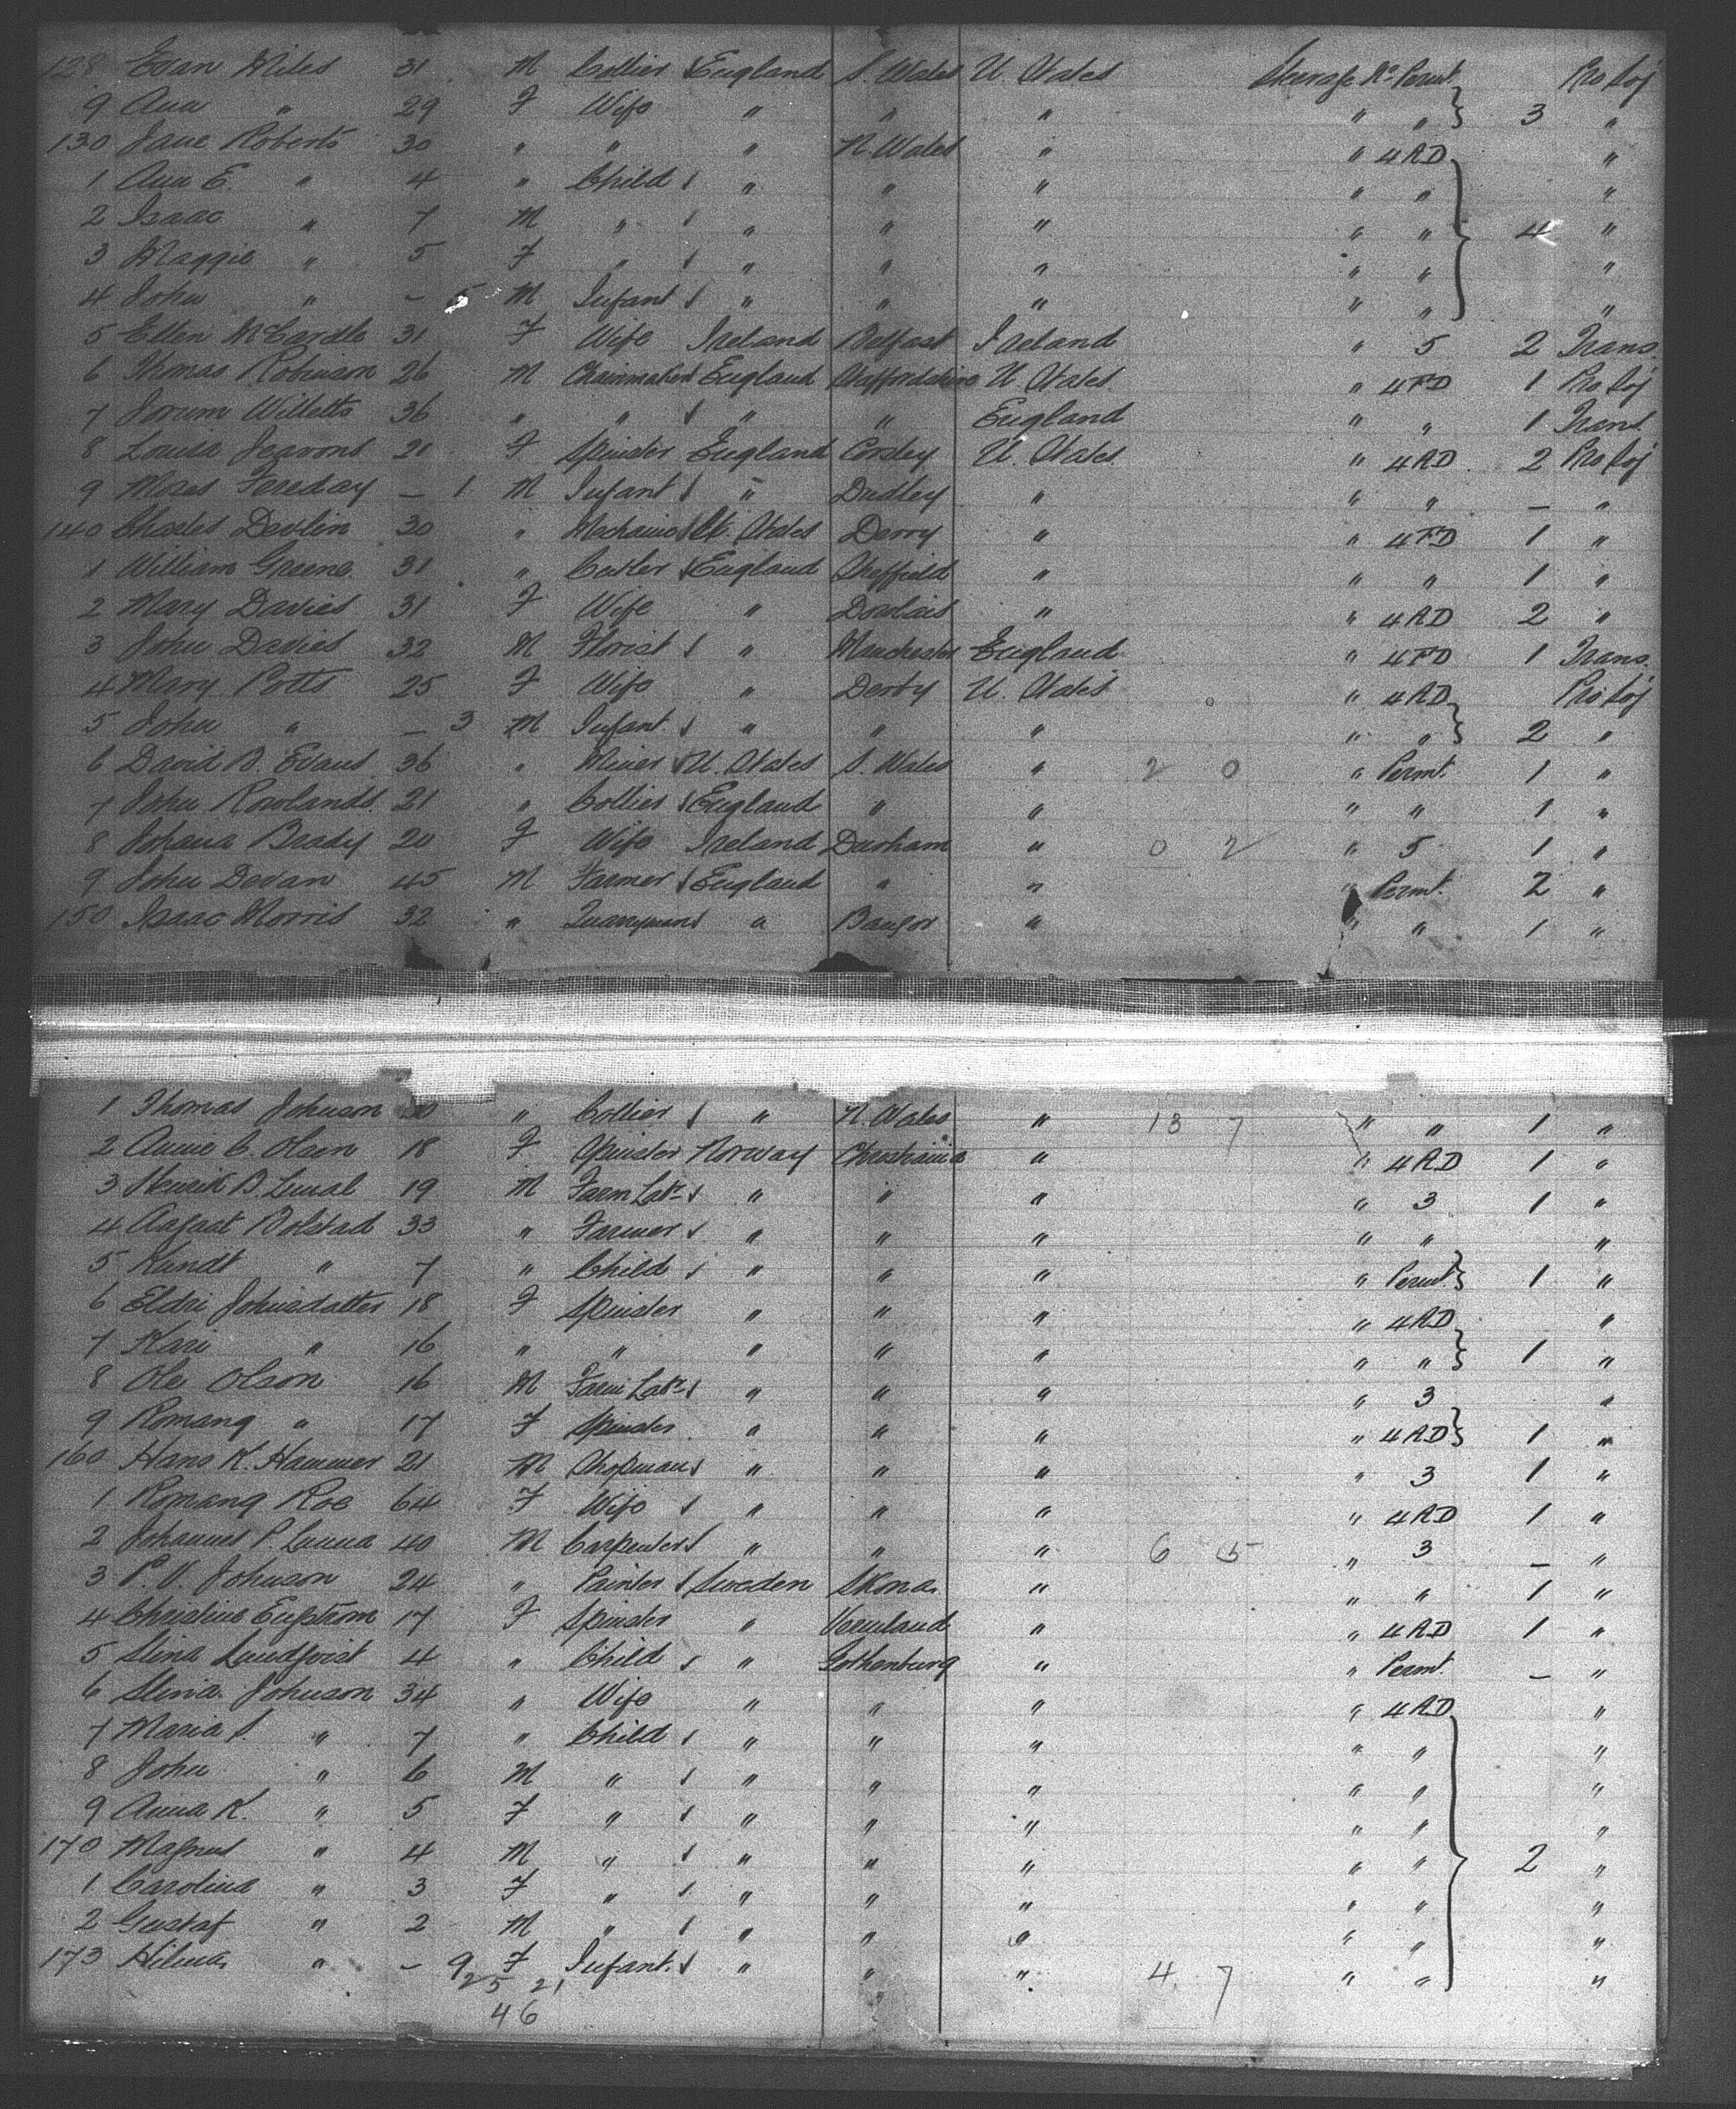 128 Evan Miles 31 M Collier England S. Wales U. States Steerage Permt. Pro Soj
9 Ann " 29 F Wife " " " " " 3 "
130 Jane Roberts 30 " " " N. Wales " " 4 AD "
1 Ann E. " 4 " Child " " " " " "
2 Isaac " 7 M " " " " " " 4 "
3 Maggie " 5 F " " " " " " "
4 John " - 5 M Infant " " " " " "
5 Ellen McCardle 31 F Wife Ireland Belfast Ireland " 5 2 Trans.
6 Thomas Robinson 26 M Chainmaker England Staffordshire U. States " 4 FD 1 Pro Soj
7 Willetts 36 " " " " England " " 1 Trans.
8 Louisa Jeavons 21 F Spinster England U. States " 4 AD 2 Pro Soj
9 Moses Fereday - 1 M Infant " Dudley " " " - "
140 Charles Devlin 30 " Mechanic U. States Derry " " 4 FD 1 "
1 William Greene 31 " Cutler England Sheffield " " " 1 "
2 Mary Davies 31 F Wife " Dowlais " " 4 AD 2 "
3 John Davies 32 M Florist " Manchester England " 4 FD 1 Trans.
4 Mary Potts 25 F Wife " Derby U. States " 4 AD Pro Soj
5 John " - 3 M Infant " " " " " 2 "
6 David B. Evans 36 " Miner U. States S. Wales " 2 0 " Permt. 1 "
7 John Rowlands 21 " Collier England " " " " 1 "
8 Johana Brady 20 F Wife Ireland Durham " 0 2 " 5 1 "
9 John Devan 45 M Farmer England " " " Permt. 2 "
150 Isaac Morris 32 " Quarryman " Bangor " " " 1 "
1 Thomas Johnson " Collier " N. Wales " 13 7 " " 1 "
2 Annie C. Olsen 18 F Spinster Norway Christiania " " 4 AD 1 "
3 Henrik B. 19 M Farm Labr " " " " 3 1 "
4 Bolstad 33 " Farmer " " " " " "
5 Kundt " 7 " Child " " " " Permt. 1 "
6 Eldri Johnsdatter 18 F Spinster " " " " 4 AD "
7 Kari " 16 " " " " " " " 1 "
8 Ole Olson 16 M Farm Labr " " " " 3 "
9 Romang " 17 F Spinster " " " " 4 AD 1 "
160 Hans K. Hammer 21 M Shopman " " " " 3 1 "
1 Romang Roe 64 F Wife " " " " 4 AD 1 "
2 Johannes P. 40 M Carpenter " " " 6 5 " 3 - "
3 P. O. Johnson 24 " Painter Sweden Skona " " " 1 "
4 Christine Engstrom 17 F Spinster " Vermland " " 4 AD 1 "
5 Stina Lundqvist 4 " Child " Gothenburg " " Permt. - "
6 Stina Johnson 34 " Wife " " " " 4 AD "
7 Maria S. " 7 " Child " " " " " "
8 John " 6 M " " " " " " "
9 Anna K. " 5 F " " " " " " "
170 Magnus " 4 M " " " " " " 2 "
1 Carolina " 3 F " " " " " " "
2 Gustaf " 2 M " " " " " " "
173 Hilma " - 9 F Infant " " " 4 7 " " "
25 21
46